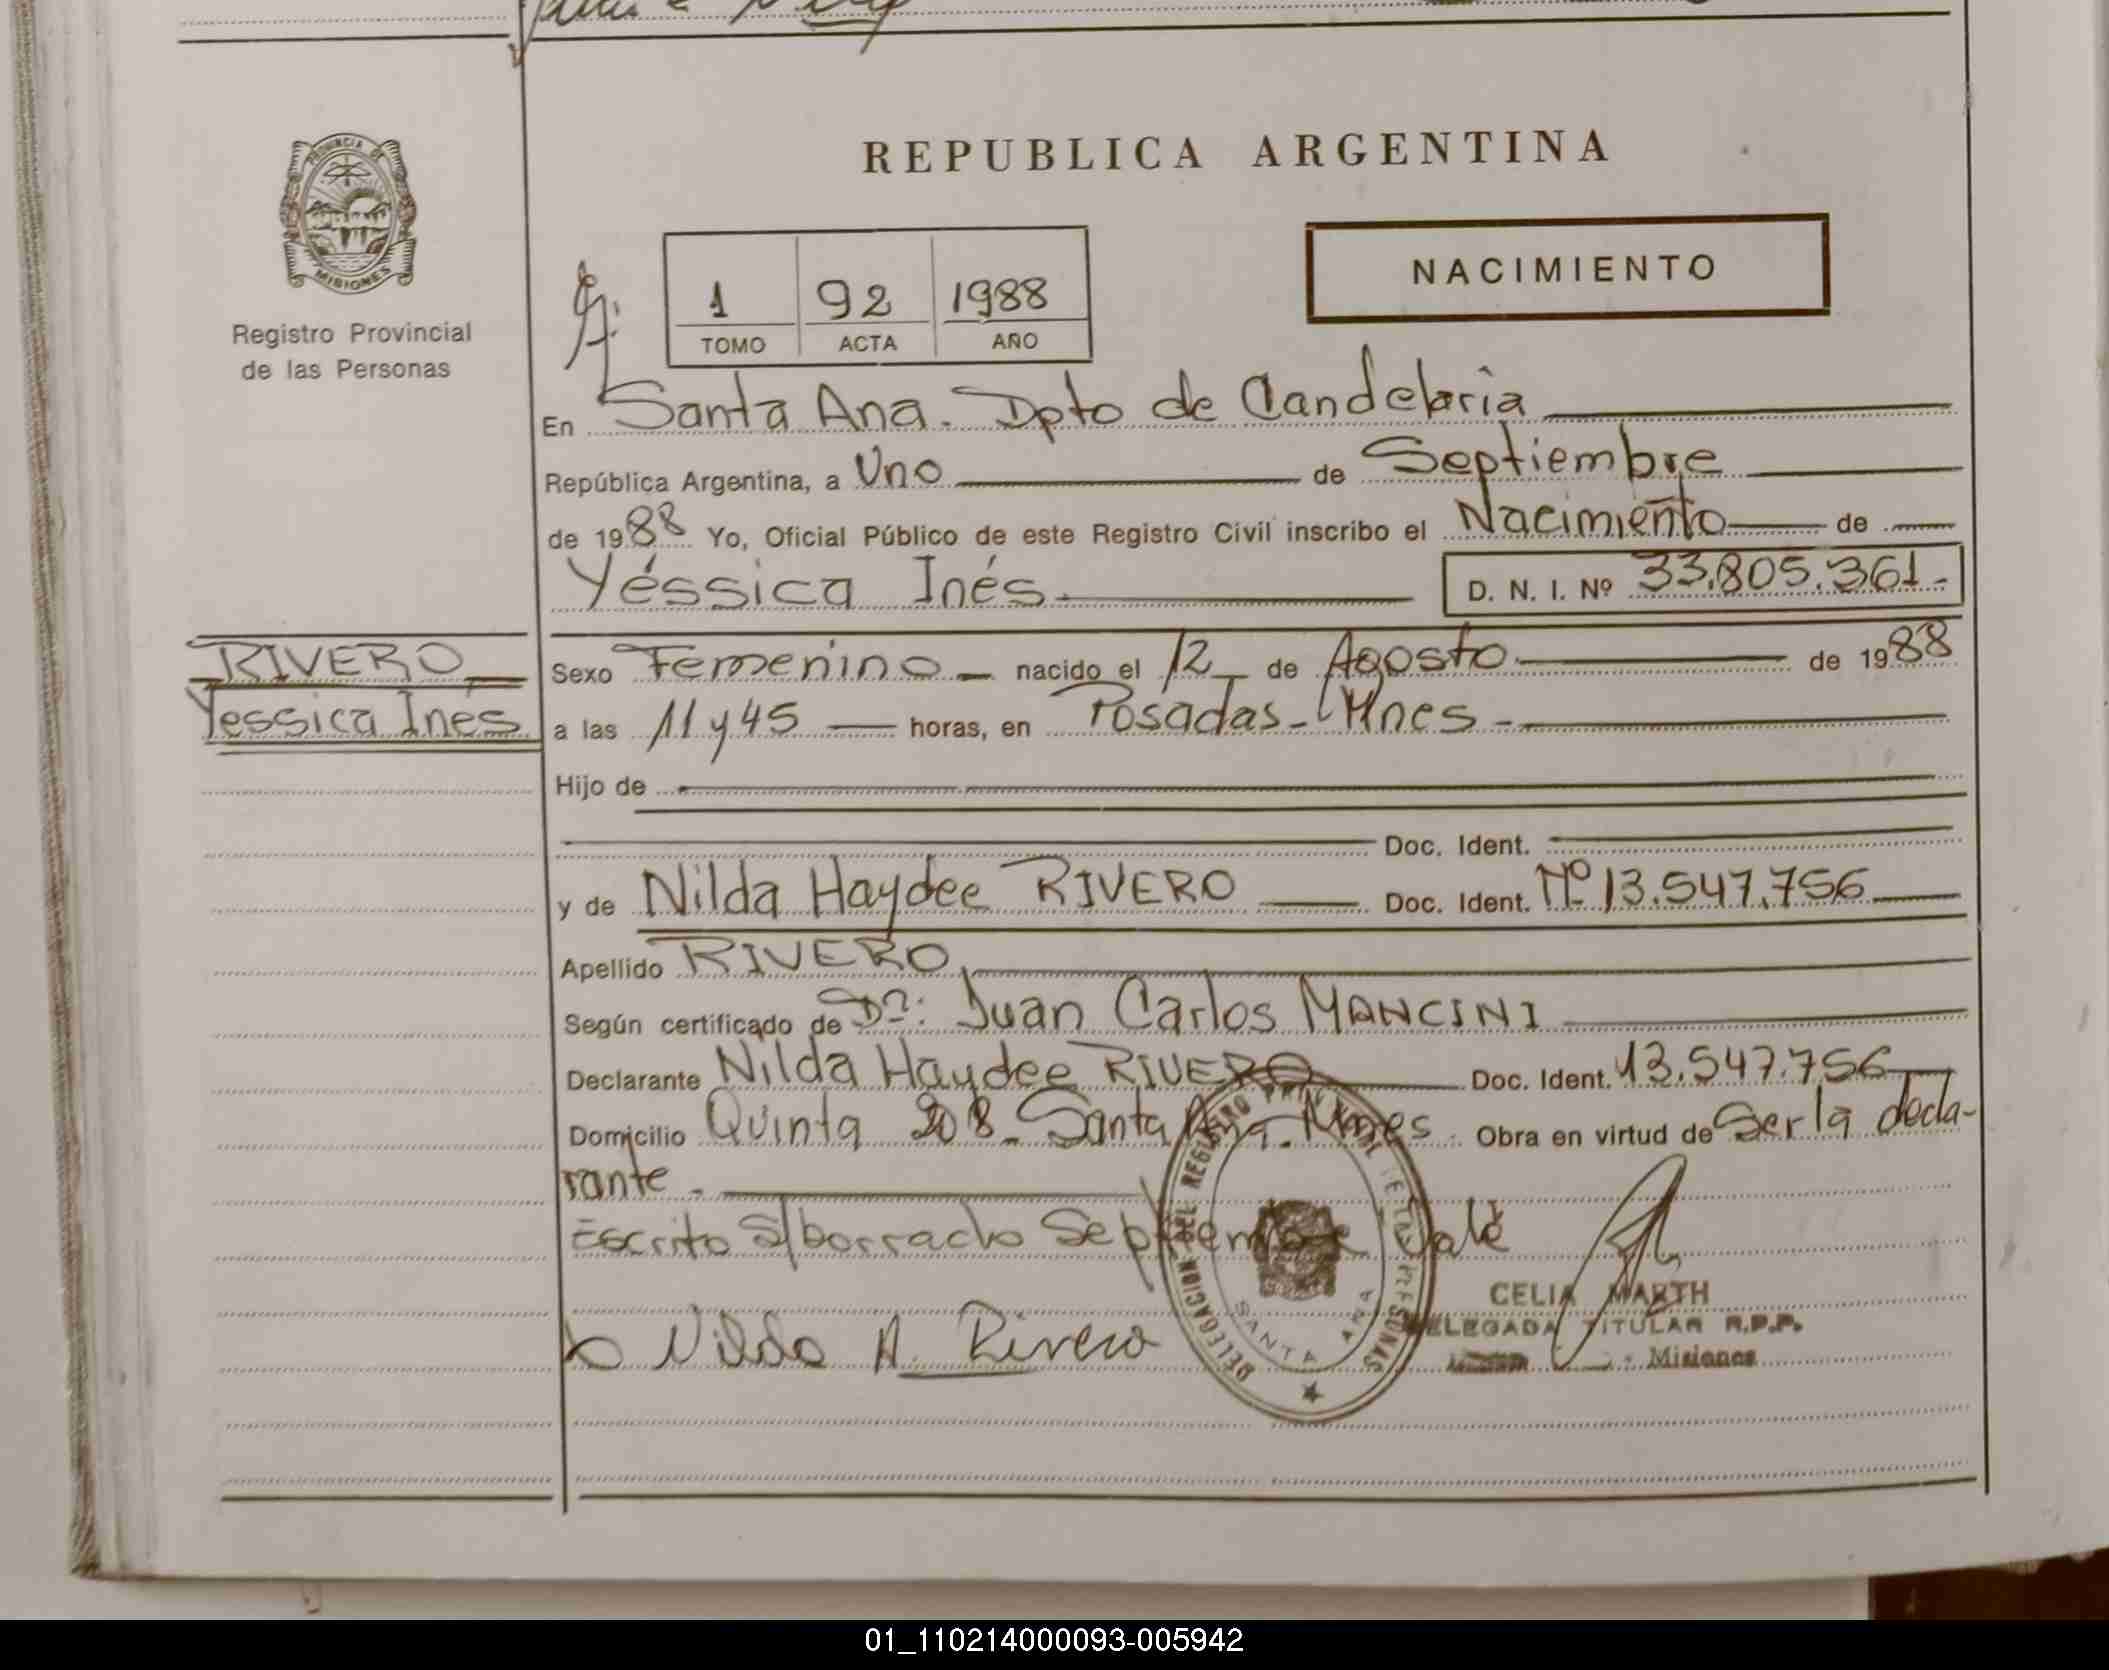 PROVINCIA DE
MISIONES
Registro Provincial
de las Personas
REPUBLICA ARGENTINA
NACIMIENTO
1 92 1988
TOMO ACTA AÑO
En Santa Ana. Dpto de Candelaria
República Argentina, a Uno de Septiembre
de 1988 Yo, Oficial Público de este Registro Civil inscribo el Nacimiento de
Yéssica Inés D. N. I. Nº 33.805.361.-
RIVERO
Yessica Inés
Sexo Femenino nacido el 12 de Agosto de 1988
a las 11 y 45 horas, en Posadas - Mnes -
Hijo de
Doc. Ident.
y de Nilda Haydee RIVERO Doc. Ident. Nº 13.547.756
Apellido RIVERO
Según certificado de Dr: Juan Carlos MANCINI
Declarante Nilda Haydee RIVERO Doc. Ident. 13.547.756
Domicilio Quinta 208 - Santa Ana. Mnes. Obra en virtud de Ser la decla-
rante -
Escrito S/borrado Septiembre Vale
Nilda A. Rivero
DELEGACION DEL REGISTRO PROVINCIAL DE LAS PERSONAS
SANTA ANA
CELIA MARTH
DELEGADA TITULAR R.P.P.
Misiones
01_110214000093-005942